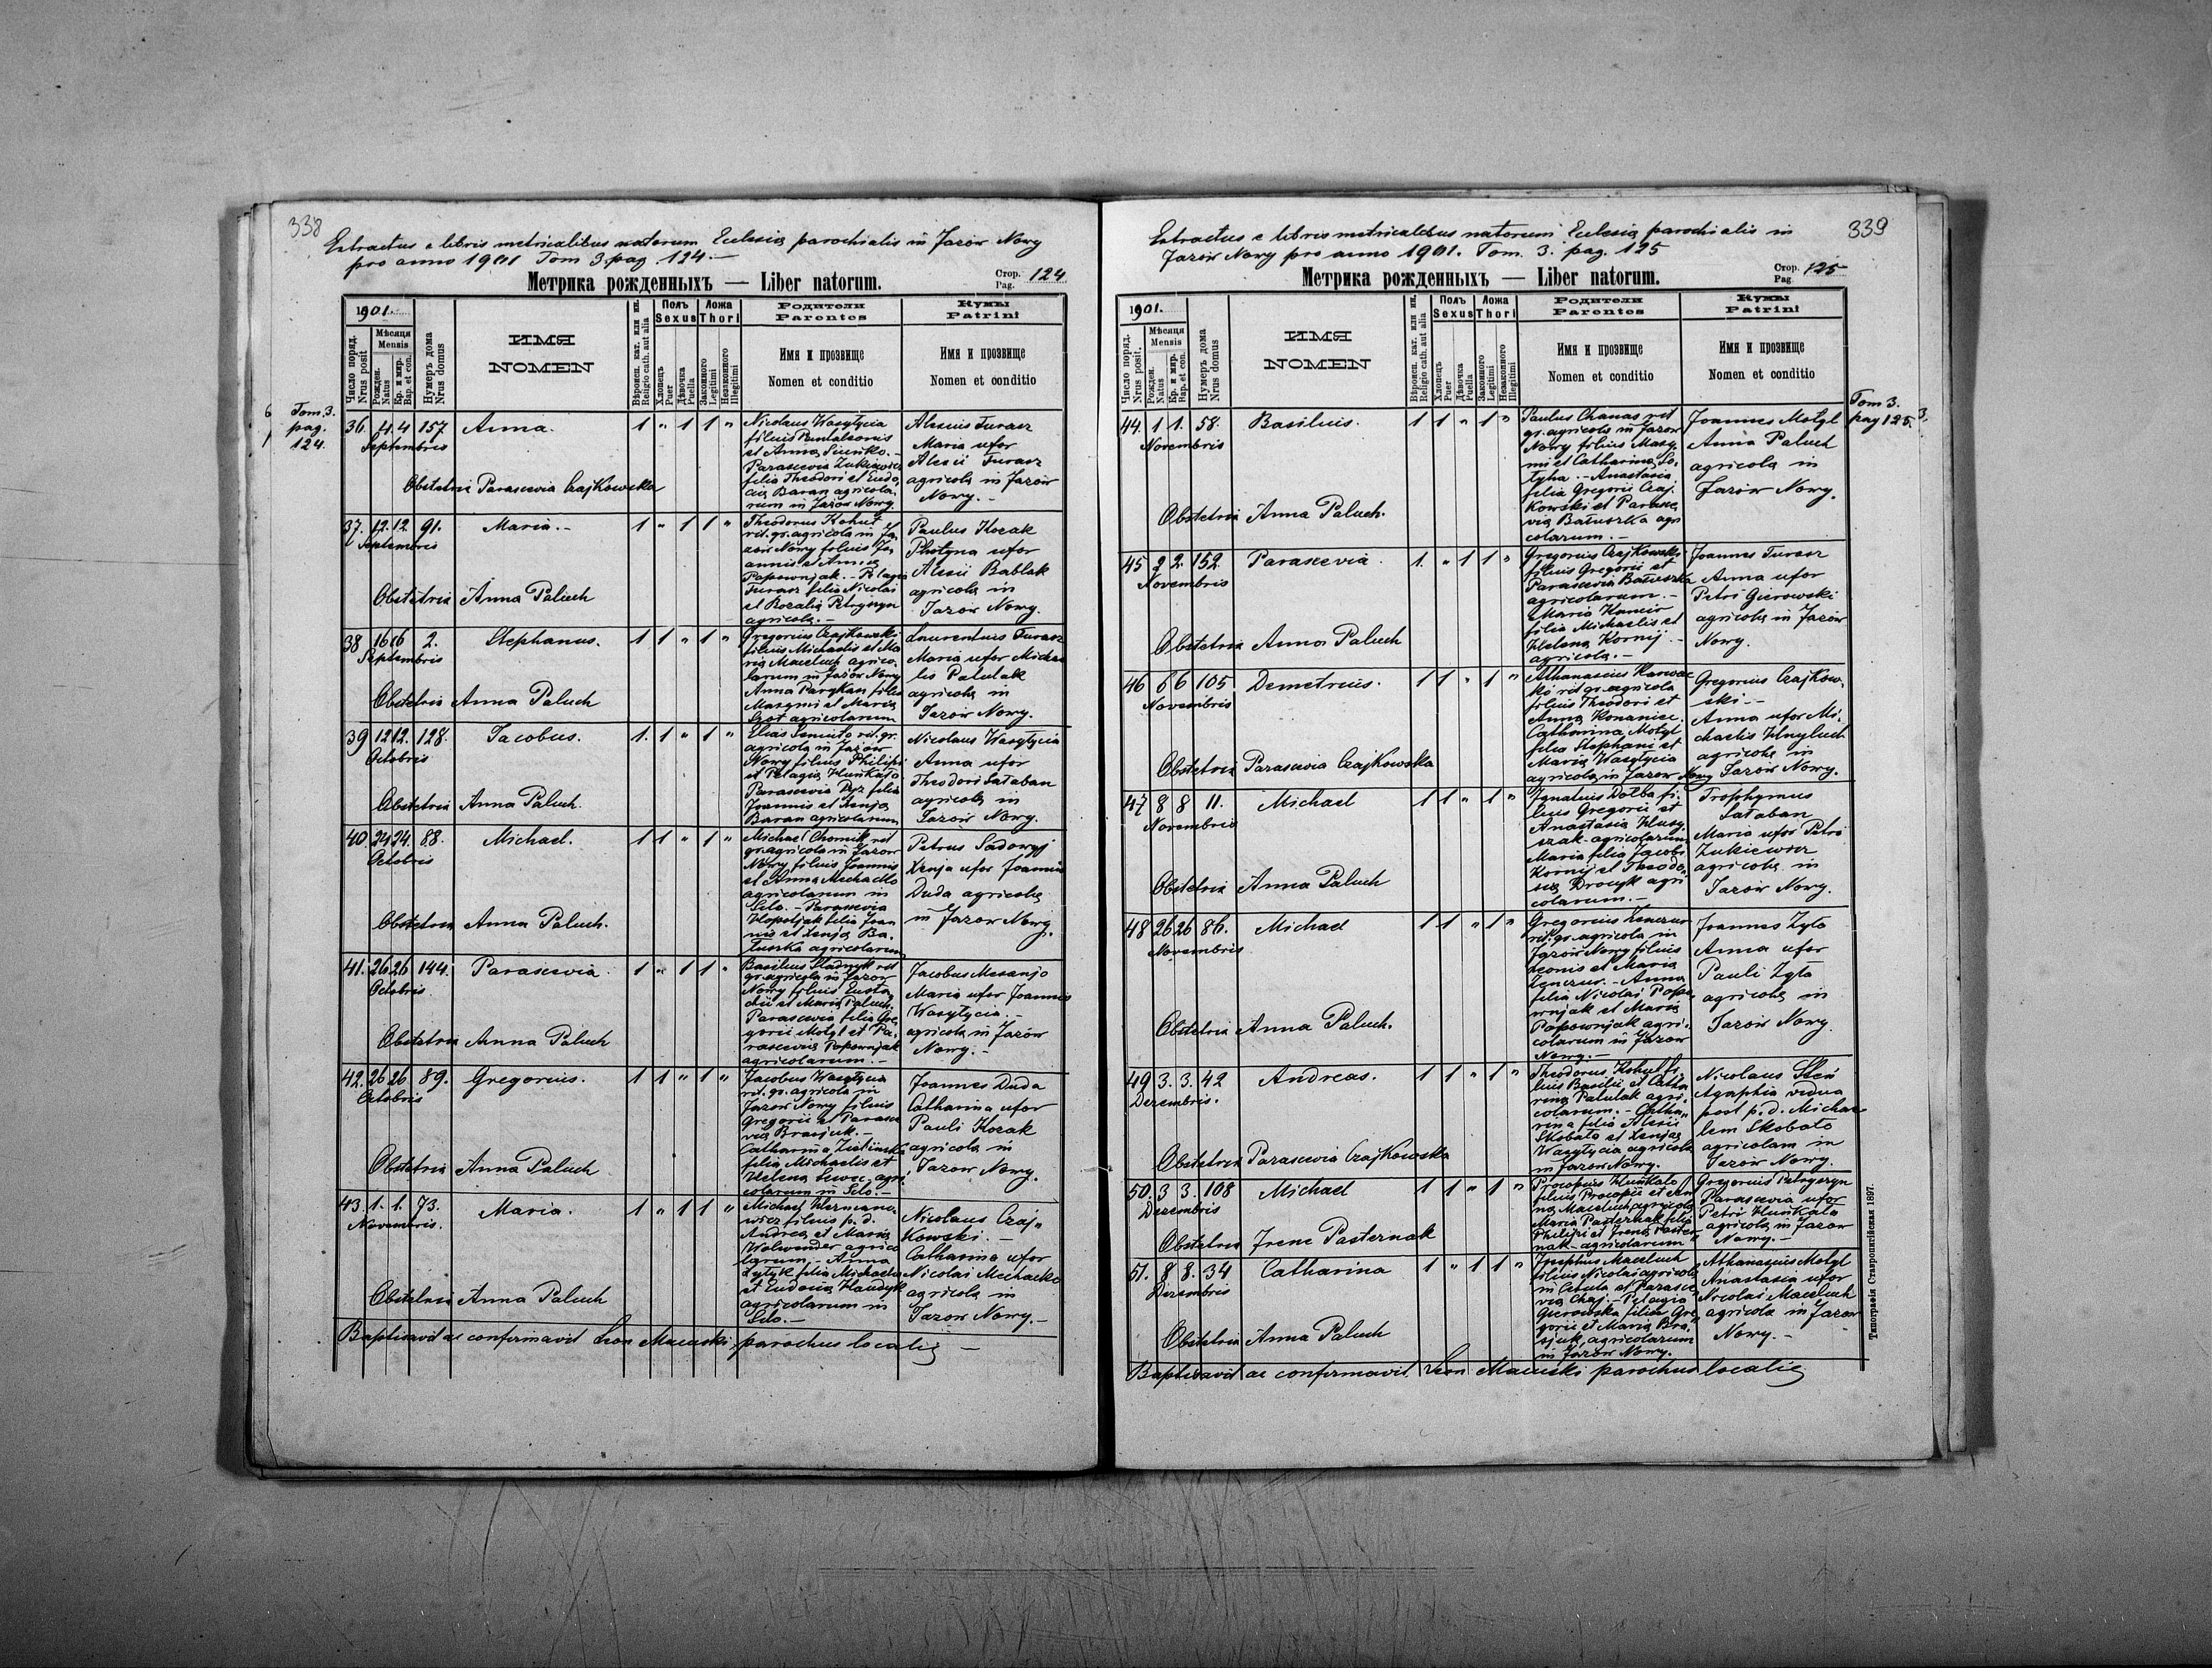 338
Extractus e libris metricalibus natorum Ecclesiæ parochialis in Jazów Nowy
pro anno 1901 Tom 3. pag. 124.—
Метрика рожденныхъ — Liber natorum.
Стор. Pag. 124
1901.
Число поряд. Nrus posit
Мѣсяця Mensis
Рожден. Natus
Кр. и мир. Bap. et con.
Нумеръ дома Nrus domus
ИМЯ
NOMEN
Вѣроисп. кат. или ин. Religio cath. aut alia
Полъ Sexus
Хлопецъ Puer
Дѣвочка Puella
Ложа Thori
Законного Legitimi
Незаконного Illegitimi
Родители
Parentes
Имя и прозвище
Nomen et conditio
Кумы
Patrini
Имя и прозвище
Nomen et conditio
Tom. 3.
pag.
124.
36. 4. 4 157 Anna. 1 " 1 1 "
Septembris
Obstetrix Parascevia Czajkowska
Nicolaus Wasylycia
filius Pantaleonis
et Annæ Sieńko.—
Parascevia Żukiewicz
filia Theodori et Eudo,
ciæ Baran agricola,
rum in Jazów Nowy.
Alexius Furasz
Maria uxor
Alexii Furasz
agricolæ in Jazów
Nowy.—
37. 12. 12. 91. Maria.— 1 " 1 1 "
Septembris
Obstetrix Anna Paluch
Theodorus Kohut
rit. gr. agricola in Ja,
zów Nowy filius Jo,
annis et Annæ
Papownjak.— Pelagia
Furasz filia Nicolai
et Rozaliæ Petryszyn
agricolæ.—
Paulus Kozak
Photyna uxor
Alexii Bablak
agricolæ in
Jazów Nowy.
38 16 16 2. Stephanus. 1 1 " 1 "
Septembris
Obstetrix Anna Paluch
Gregorius Czajkowski
filius Michaelis et Ma
riæ Maceluch agrico,
larum in Jazów Nowy
Anna Parykan filia
Maxymi et Mariæ
Szot agricolarum
Laurentius Furasz
Maria uxor Michae
lis Palulak
agricolæ in
Jazów Nowy.
39 12 12. 128. Jacobus. 1. 1 " 1 "
Octobris
Obstetrix Anna Paluch.
Elias Semuto rit. gr.
agricola in Jazów
Nowy filius Philippi
et Pelagiæ Huńkało
Parascevia Dyz filia
Joannis et Xeniæ
Baran agricolarum
Nicolaus Wasylycia
Anna uxor
Theodori Sałaban
agricolæ in
Jazów Nowy.
40. 24 24. 88. Michael. 1 1 " 1 "
Octobris
Obstetrix Anna Paluch.
Michael Chomik rit
gr. agricola in Jazów
Nowy filius Joannis
et Annæ Michaćko
agricolarum in
Selo.— Parascevia
Hlopotjak filia Joan
nis et Xeniæ Ba,
tuszka agricolarum
Petrus Sadowyj
Xenja uxor Joannis
Duda agricolæ
in Jazów Nowy.
41. 26 26 144. Parascevia. 1 " 1 1 "
Octobris
Obstetrix Anna Paluch
Basilius Hadnyk rit
gr. agricola in Jazów
Nowy filius Eusta,
chii et Mariæ Paluch.
Parascevia filia Gre
gorii Motyl et Pa,
rasceviæ Papownjak
agricolarum.—
Jacobus Mesanjo
Maria uxor Joannis
Wasylycia.—
agricolæ in Jazów
Nowy.—
42. 26 26. 89. Gregorius. 1 1 " 1 "
Octobris
Obstetrix Anna Paluch
Jacobus Wasylycia
rit. gr. agricola in
Jazów Nowy filius
Gregorii et Parasce
viæ Brasjuk.—
Catharina Zielińska
filia Michaelis et
Helenæ Szwec, agri,
colarum in Selo.—
Joannes Duda
Catharina uxor
Pauli Kozak
agricolæ in
Jazów Nowy.
43. 1. 1. 73. Maria. 1 " 1 1 "
Novembris.
Obstetrix Anna Paluch
Michael Hermano,
wicz filius p. d.
Andreæ et Mariæ
Wolwender agrico
larum.— Anna
Łytyk filia Michaelis
et Eudociæ Haudyk
agricolarum in
Selo.—
Nicolaus Czaj„
kowski.—
Catharina uxor
Nicolai Michaćko
agricolæ in
Jazów Nowy.—
Baptisavit ac confirmavit Leon Macielski, parochus localis —
339
Extractus e libris metricalibus natorum Ecclesiæ parochialis in
Jazów Nowy pro anno 1901. Tom. 3. pag. 125
Метрика рожденныхъ — Liber natorum.
Стор. Pag. 125
1901.
Число поряд. Nrus posit.
Мѣсяця Mensis
Рожден. Natus
Кр. и мир. Bap. et con.
Нумеръ дома Nrus domus
ИМЯ
NOMEN
Вѣроисп. кат. или ин. Religio cath. aut alia
Полъ Sexus
Хлопецъ Puer
Дѣвочка Puella
Ложа Thori
Законного Legitimi
Незаконного Illegitimi
Родители
Parentes
Имя и прозвище
Nomen et conditio
Кумы
Patrini
Имя и прозвище
Nomen et conditio
Tom 3.
pag 125.
44. 1 1. 58. Basilius. 1 1 " 1 "
Novembris
Obstetrix Anna Paluch.
Paulus Chanas rit
gr. agricola in Jazów
Nowy filius Maxy,
mi et Catharinæ So,
tyha.— Anastasia
filia Gregorii Czaj,
kowski et Parasce,
viæ Batuszka agri
colarum.—
Joannes Motyl
Anna Paluch
agricolæ in
Jazów Nowy.
45 2 2. 152. Parascevia. 1. " 1 1 "
Novembris
Obstetrix Anna Paluch
Gregorius Czajkowski
filius Gregorii et
Parasceviæ Batuszka
agricolarum.—
Maria Hancio
filia Michaelis et
Helenæ Kornij.—
agricolæ.—
Joannes Furasz
Anna uxor
Petri Gierowski
agricolæ in Jazów
Nowy.
46 6 6 105 Demetrius. 1 1 " 1 "
Novembris
Obstetrix Parascevia Czajkowska
Athanasius Harwac
ko rit gr. agricola
filius Theodori et
Annæ Konaniec.
Catharina Motyl
filia Stephani et
Mariæ Wasylycia
agricolæ in Jazów Nowy
Gregorius Czajkow,
ski—
Anna uxor Mi,
chaelis Hnyluch
agricolæ in
Jazów Nowy.
47 8 8 11. Michael 1 1 " 1 "
Novembris
Obstetrix Anna Paluch
Ignatius Dołba fi,
lius Gregorii et
Anastasiæ Husy,
szak agricolarum
Maria filia Jacobi
Kornij et Theodo,
siæ Drocyk agri
colarum.—
Trophymus
Sałaban
Maria uxor Petri
Żukiewicz
agricolæ in
Jazów Nowy.
48 26 26 86. Michael 1 1 " 1 "
Novembris
Obstetrix Anna Paluch.
Gregorius Zenczur
rit. gr. agricola in
Jazów Nowy filius
Leonis et Mariæ
Zenczur.— Anna
filia Nicolai Papo
wnjak et Mariæ
Papownjak agri,
colarum in Jazów
Nowy.—
Joannes Zyła
Anna uxor
Pauli Zyła
agricolæ in
Jazów Nowy.
49 3. 3. 42 Andreas. 1 1 " 1 "
Dezembris.
Obstetrix Parascevia Czajkowska
Theodorus Kohut fi,
lius Basilii et Catha
rinæ Palulak agri,
colarum.— Catha„
rina filia Alexii
Skobało et Xeniæ
Wasylycia agricolæ
in Jazów Nowy.
Nicolaus Steń
Agaphia vidua
post p. d. Michae
lem Skobało
agricolam in
Jazów Nowy.
50. 3 3. 108 Michael 1 1 " 1 "
Dezembris
Obstetrix Irene Pasternak
Procopius Huńkało
filius Procopii et An
næ Maceluch agricola
Maria Pasternak filia
Philippi et Irenæ Paster„
nak agricolarum
Gregorius Petryszyn
Parascevia uxor
Petri Huńkało
agricolæ in Jazów
Nowy.—
51. 8. 8. 34 Catharina 1 " 1 1 "
Dezembris
Obstetrix Anna Paluch
Josephus Maceluch
filius Nicolai agricolæ
in Cetula et Parasce
viæ Chaj.— Pelagia
Gierowska filia Gre
gorii et Mariæ Bra,
sjuk, agricolarum
in Jazów Nowy.
Athanasius Motyl
Anastasia uxor
Nicolai Maceluch
agricolæ in Jazów
Nowy.—
Baptisavit ac confirmavit Leon Macielski parochus localis
Типографія Ставропигійская 1897.